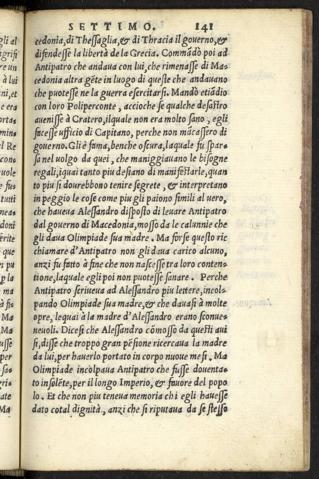 SETTIMO. 141
cedonia, di Thessaglia, & di Thracia il governo, &
difendesse la libertà de la Grecia. Commãdò poi ad
Antipatro che andaua con lui, che rimenasse di Ma-
cedonia altra gẽte in luogo di queste che andauano
che puotesse ne la guerra esercitarsi. Mandò etiãdio
con loro Poliperconte, accioche se qualche desastro
auenisse à Cratero, ilquale non era molto sano, egli
facesse vfficio di Capitano, perche non mãcassero di
gouerno. Gli è fama, benche oscura, laquale fu spar-
sa nel uolgo da quei, che maniggiauano le bisogne
regali, iquai tanto piu desiano di manifestarle, quan
to piu si dourebbono tenire segrete, & interpretano
in peggio le cose come piu gli paiono simili al uero,
che haueua Alessandro disposto di leuare Antipatro
dal gouerno di Macedonia, mosso da le calunnie che
gli daua Olimpiade sua madre. Ma forse questo ri-
chiamare d'Antipatro non gli daua carico alcuno,
anzi fu fatto à fine che non nascesse tra loro conten-
tione, laquale egli poi non puotesse sanare. Perche
Antipatro scriueua ad Alessandro piu lettere, incol-
pando Olimpiade sua madre, & che dauasi à molte
opre, lequai à la madre d'Alessandro erano sconue-
neuoli. Dicesi che Alessandro cõmosso da questi aui
si, disse che troppo gran pẽsione ricercaua la madre
da lui, per hauerlo portato in corpo nuoue mesi. Ma
Olimpiade incolpaua Antipatro che fusse douenta-
to insolẽte, per il longo Imperio, & fauore del popo
lo. Et che non piu teneua memoria chi egli hauesse
dato cotal dignità, anzi che si riputaua da se stesso